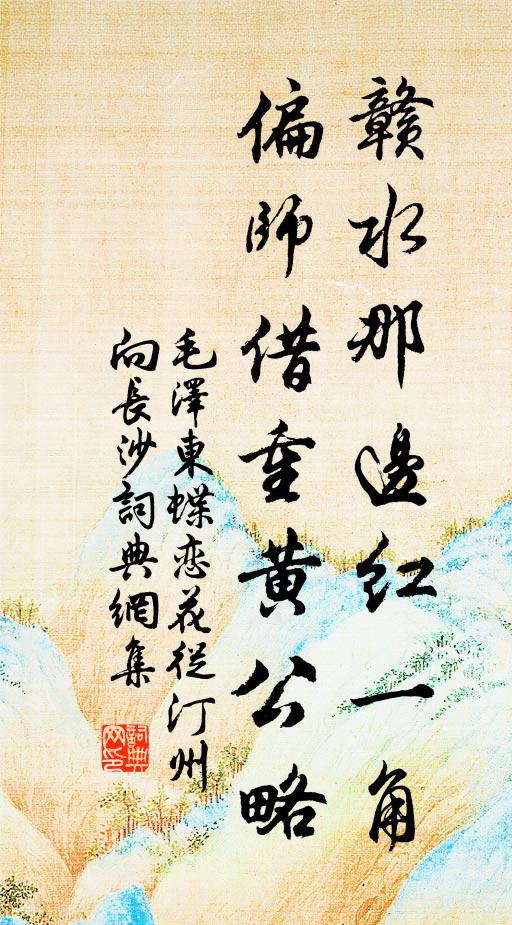 贛水那邊紅一角
偏師借重黄公略
毛澤東蝶恋花從汀州
向長沙詞典網集
詞典
网印